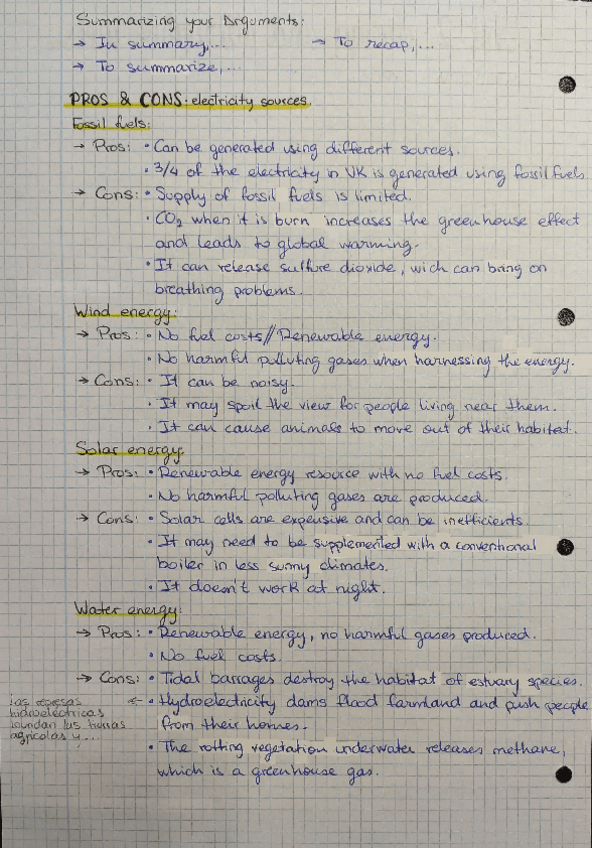 Summarizing your Arguments:
→ In summary,... → To recap,...
→ To summarize,...
PROS & CONS: electricity sources.
Fossil fuels:
→ Pros: • Can be generated using different sources.
• 3/4 of the electricity in UK is generated using fossil fuels.
→ Cons: • Supply of fossil fuels is limited.
• CO₂ when it is burn increases the greenhouse effect
and leads to global warming.
• It can release sulfure dioxide, wich can bring on
breathing problems.
Wind energy:
→ Pros: • No fuel costs//Renewable energy.
• No harmful polluting gases when harnessing the energy.
→ Cons: • It can be noisy.
• It may spoil the view for people living near them.
• It can cause animals to move out of their habitat.
Solar energy:
→ Pros: • Renewable energy resource with no fuel costs.
• No harmful polluting gases are produced.
→ Cons: • Solar cells are expensive and can be inefficients.
• It may need to be supplemented with a conventional
boiler in less sunny climates.
• It doesn't work at night.
Water energy:
→ Pros: • Renewable energy, no harmful gases produced.
• No fuel costs.
→ Cons: • Tidal barrages destroy the habitat of estuary species.
← • Hydroelectricity dams flood farmland and push people
from their homes.
• The rotting vegetation underwater releases methane,
which is a greenhouse gas.
las represas
hidroeléctricas
inundan las tierras
agrícolas y...